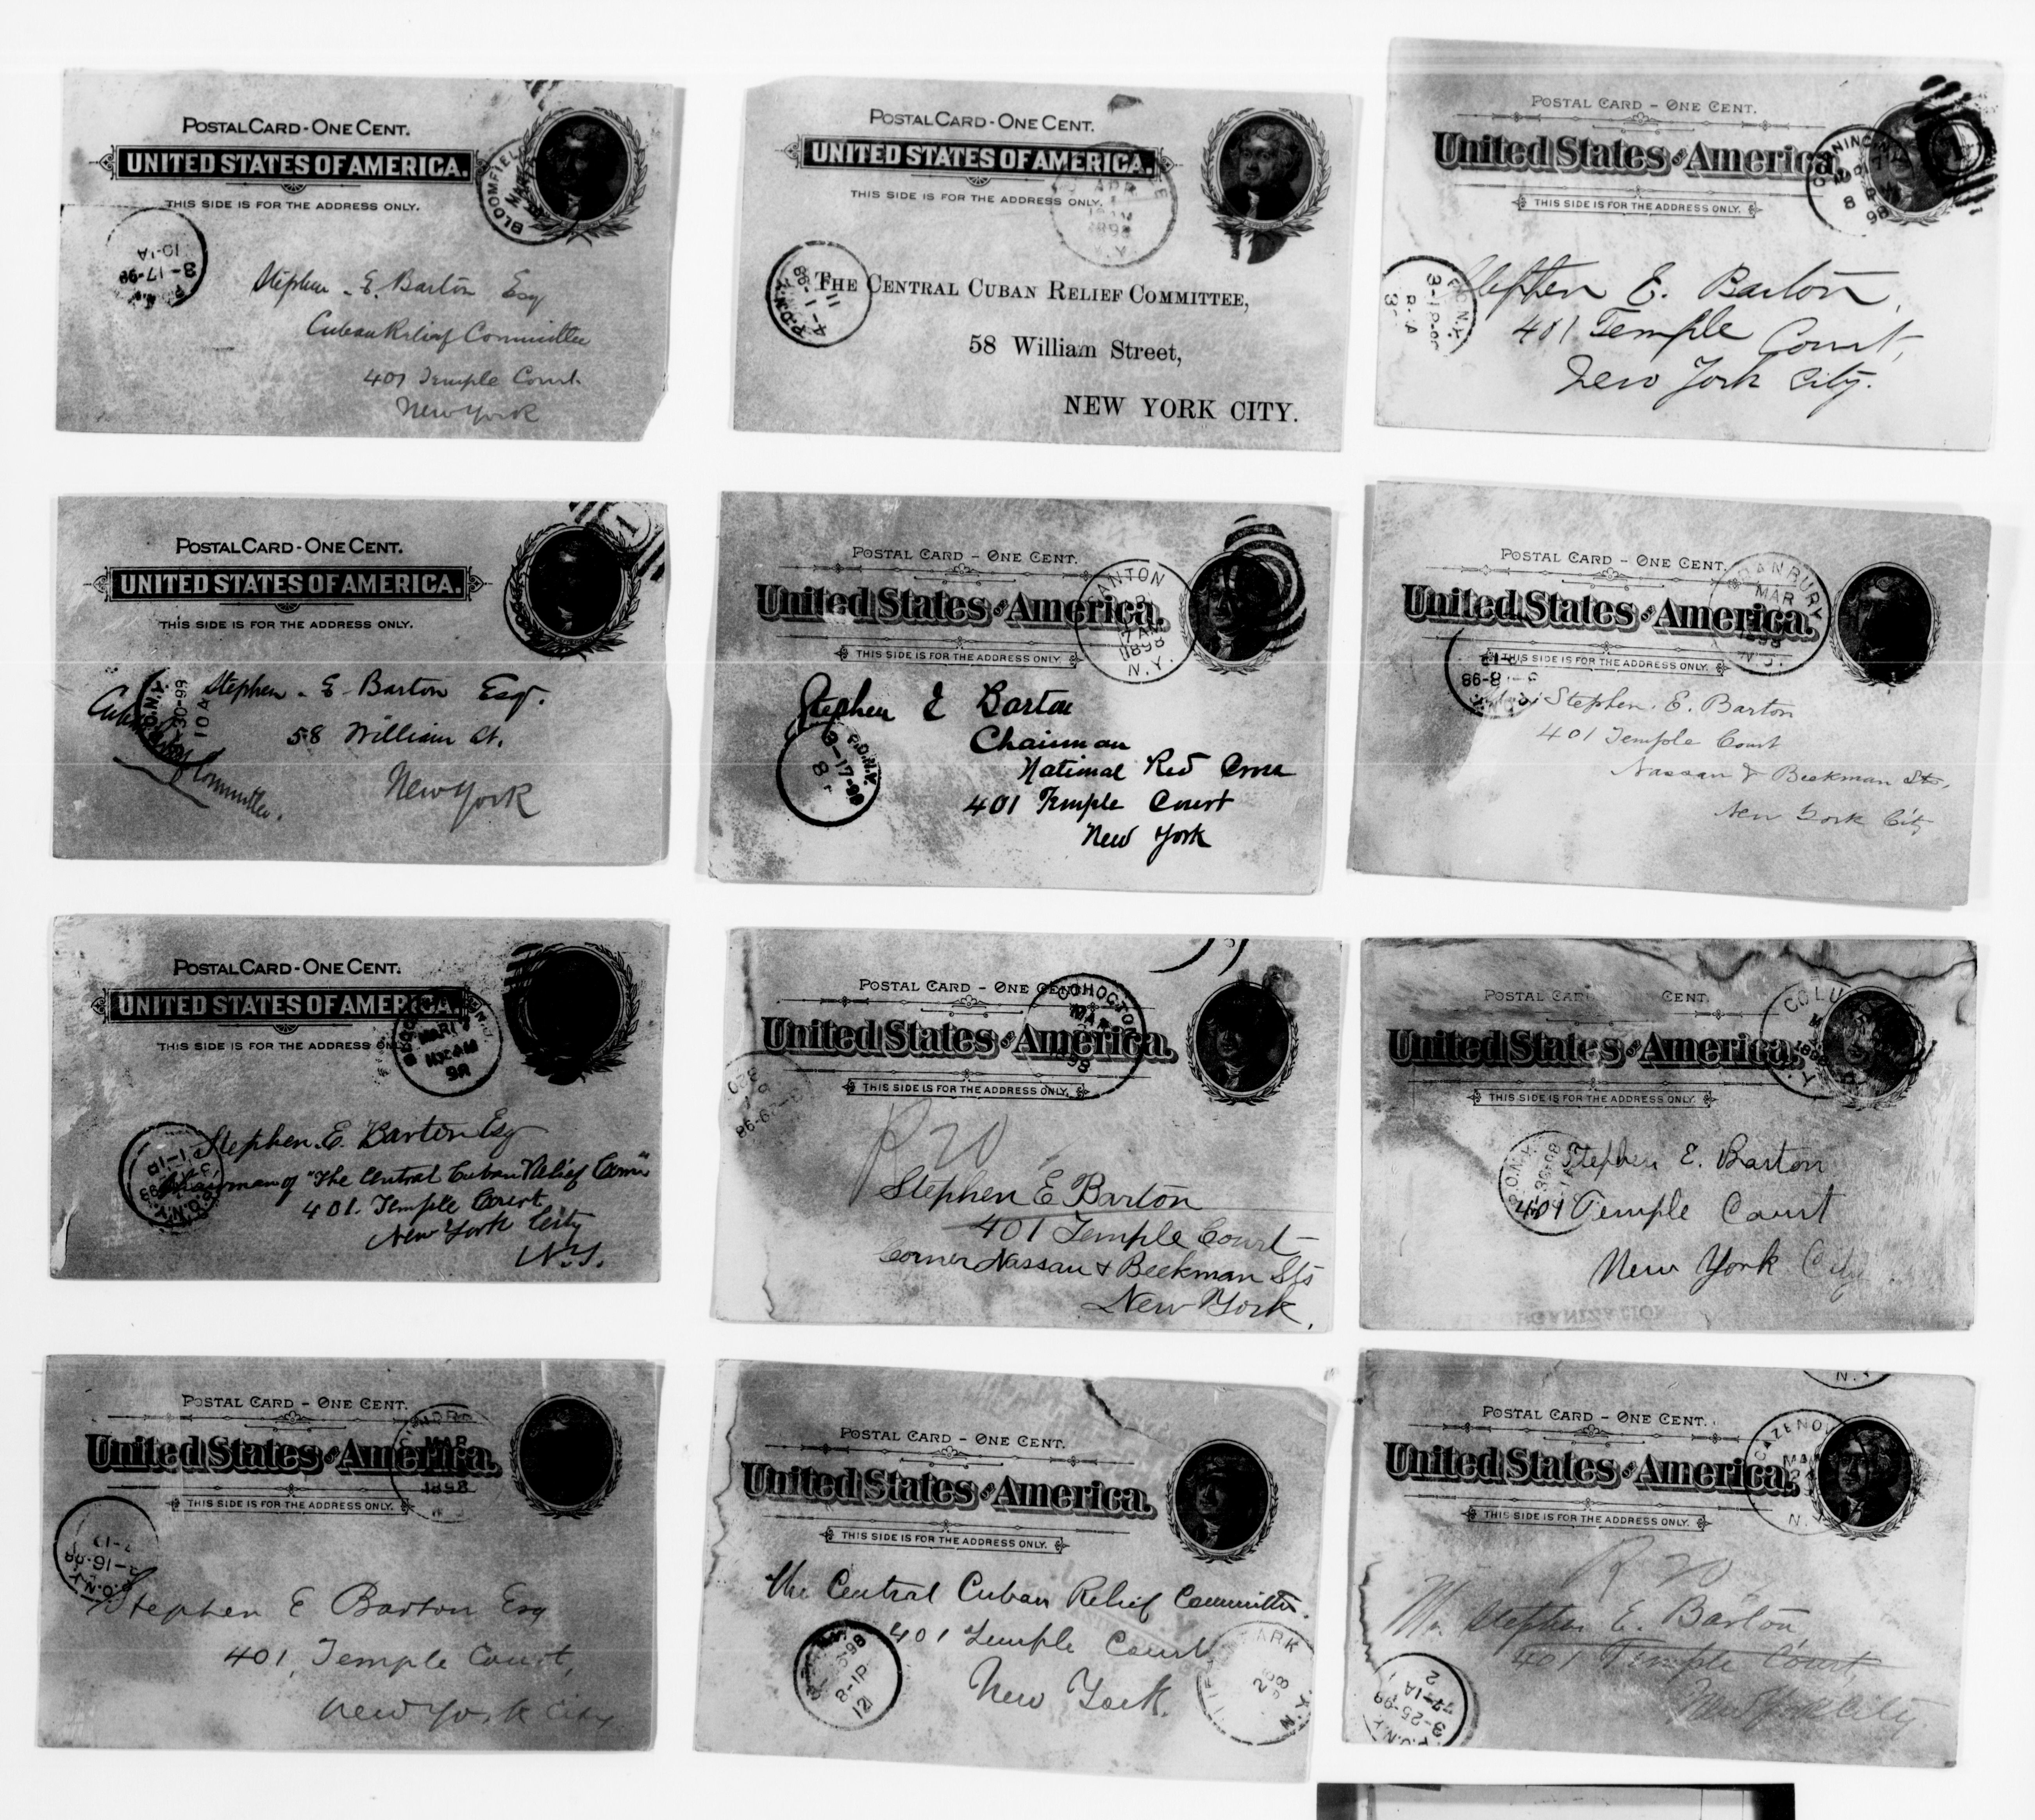 POSTAL CARD - ONE CENT.
UNITED STATES OF AMERICA.
THIS SIDE IS FOR THE ADDRESS ONLY.
BLOOMFIEL
3-17-98
10-1A
Stephen . E. Barton Esq
Cuban Relief Committee
401 Temple Court
New York
POSTAL CARD - ONE CENT.
UNITED STATES OF AMERICA.
THIS SIDE IS FOR THE ADDRESS ONLY.
APR
1898
N.Y.
P.O.N.Y.
4-1-98
11
THE CENTRAL CUBAN RELIEF COMMITTEE,
58 William Street,
NEW YORK CITY.
POSTAL CARD - ONE CENT.
United States of America.
THIS SIDE IS FOR THE ADDRESS ONLY.
1
98
N.Y.
Stephen E. Barton,
401 Temple Court,
New York City.
POSTAL CARD - ONE CENT.
UNITED STATES OF AMERICA.
THIS SIDE IS FOR THE ADDRESS ONLY.
1
O.N.Y.
30-98
10 A
Stephen . E. Barton Esq.
58 William St.
New York
Committee.
POSTAL CARD - ONE CENT.
United States of America.
THIS SIDE IS FOR THE ADDRESS ONLY.
ANTON
7 AM
1898
N.Y.
P.O.N.Y.
3-17-98
8
Stephen E Barton
Chairman
National Red Cross
401 Temple Court
New York
POSTAL CARD - ONE CENT.
United States of America.
THIS SIDE IS FOR THE ADDRESS ONLY.
CRANBURY
MAR
1898
N.J.
8-98
Stephen. E. Barton
401 Temple Court
Nassau & Beekman Sts,
New York City
POSTAL CARD - ONE CENT.
UNITED STATES OF AMERICA.
THIS SIDE IS FOR THE ADDRESS ONLY.
MAR 17
98
P.O.N.Y.
Stephen. E. Barton Esq
Chairman of "The Central Cuban Relief Com"
401. Temple Court
New York City
N.Y.
POSTAL CARD - ONE CENT.
United States of America.
THIS SIDE IS FOR THE ADDRESS ONLY.
COHOCTO
MAR
98
Stephen E Barton
401 Temple Court
Corner Nassau & Beekman Sts
New York.
POSTAL CARD CENT.
United States of America.
THIS SIDE IS FOR THE ADDRESS ONLY.
COLU
P.O.N.Y.
Stephen E. Barton
401 Temple Court
New York City
POSTAL CARD - ONE CENT.
United States of America.
THIS SIDE IS FOR THE ADDRESS ONLY.
MAR
1898
P.O.N.Y.
Stephen E Barton Esq
401, Temple Court,
New York City
POSTAL CARD - ONE CENT.
United States of America.
THIS SIDE IS FOR THE ADDRESS ONLY.
The Central Cuban Relief Committee.
401 Temple Court
New York.
8-1P
12
ARK
N.Y.
N.Y.
POSTAL CARD - ONE CENT.
United States of America.
THIS SIDE IS FOR THE ADDRESS ONLY.
CAZENOV
MAR
N.Y.
Mr. Stephen E. Barton,
401 Temple Court
New York City.
P.O.N.Y.
3-25-98